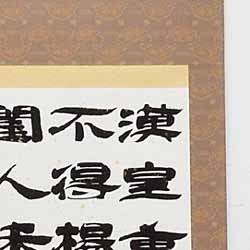 漢皇重
不得楊
閨人未